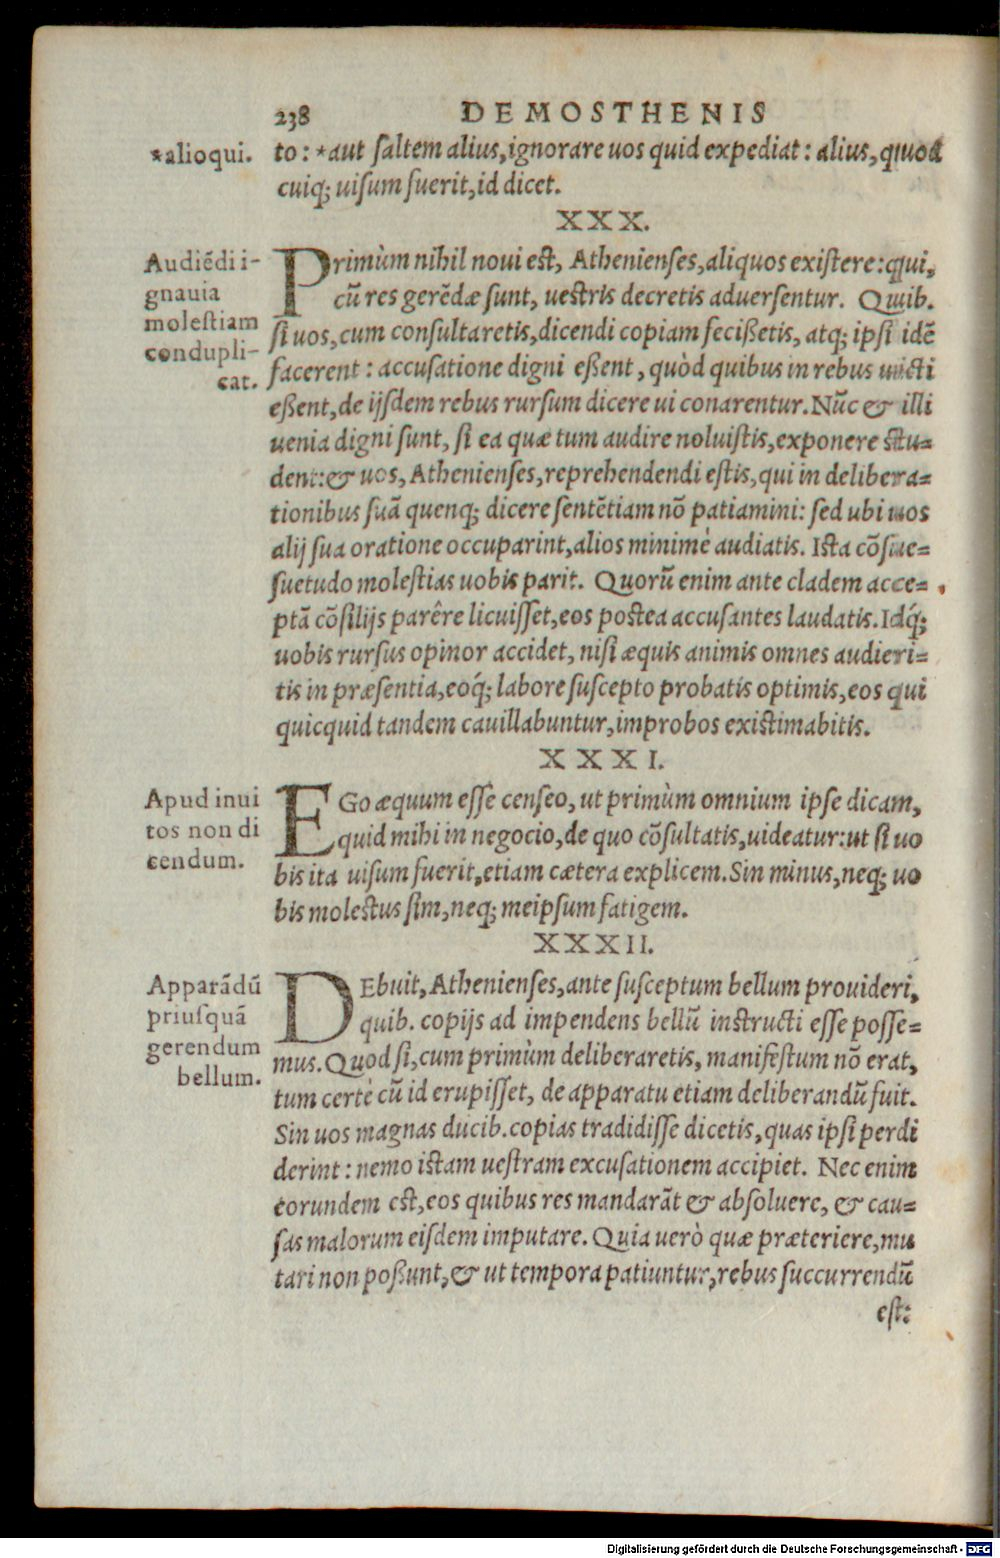 238 DEMOSTHENIS
*alioqui.
to: *aut saltem alius, ignorare uos quid expediat: alius, quod
cuiq; uisum fuerit, id dicet.
XXX.
Audiẽdi i-
gnauia
molestiam
condupli-
cat.
Primùm nihil noui est, Athenienses, aliquos existere: qui,
cũ res gerẽdæ sunt, uestris decretis aduersentur. Quib.
si uos, cum consultaretis, dicendi copiam fecißetis, atq; ipsi idẽ
facerent: accusatione digni eßent, quòd quibus in rebus uicti
eßent, de ijsdem rebus rursum dicere ui conarentur. Nũc & illi
uenia digni sunt, si ea quæ tum audire noluistis, exponere stu=
dent: & uos, Athenienses, reprehendendi estis, qui in delibera=
tionibus suã quenq; dicere sentẽtiam nõ patiamini: sed ubi uos
alij sua oratione occuparint, alios minimè audiatis. Ista cõsue=
suetudo molestias uobis parit. Quorũ enim ante cladem acce=
ptã cõsilijs parêre licuisset, eos postea accusantes laudatis. Idq́;
uobis rursus opinor accidet, nisi æquis animis omnes audieri=
tis in præsentia, eoq́; labore suscepto probatis optimis, eos qui
quicquid tandem cauillabuntur, improbos existimabitis.
XXXI.
Apud inui
tos non di
cendum.
EGo æquum esse censeo, ut primùm omnium ipse dicam,
quid mihi in negocio, de quo cõsultatis, uideatur: ut si uo
bis ita uisum fuerit, etiam cætera explicem. Sin minus, neq; uo
bis molestus sim, neq; meipsum fatigem.
XXXII.
Apparãdũ
priusquã
gerendum
bellum.
DEbuit, Athenienses, ante susceptum bellum prouideri,
quib. copijs ad impendens bellũ instructi esse posse=
mus. Quod si, cum primùm deliberaretis, manifestum nõ erat,
tum certè cũ id erupisset, de apparatu etiam deliberandũ fuit.
Sin uos magnas ducib. copias tradidisse dicetis, quas ipsi perdi
derint: nemo istam uestram excusationem accipiet. Nec enim
eorundem est, eos quibus res mandarãt & absoluere, & cau=
sas malorum eisdem imputare. Quia uerò quæ præteriere, mu
tari non poßunt, & ut tempora patiuntur, rebus succurrendũ
est:
Digitalisierung gefördert durch die Deutsche Forschungsgemeinschaft - DFG